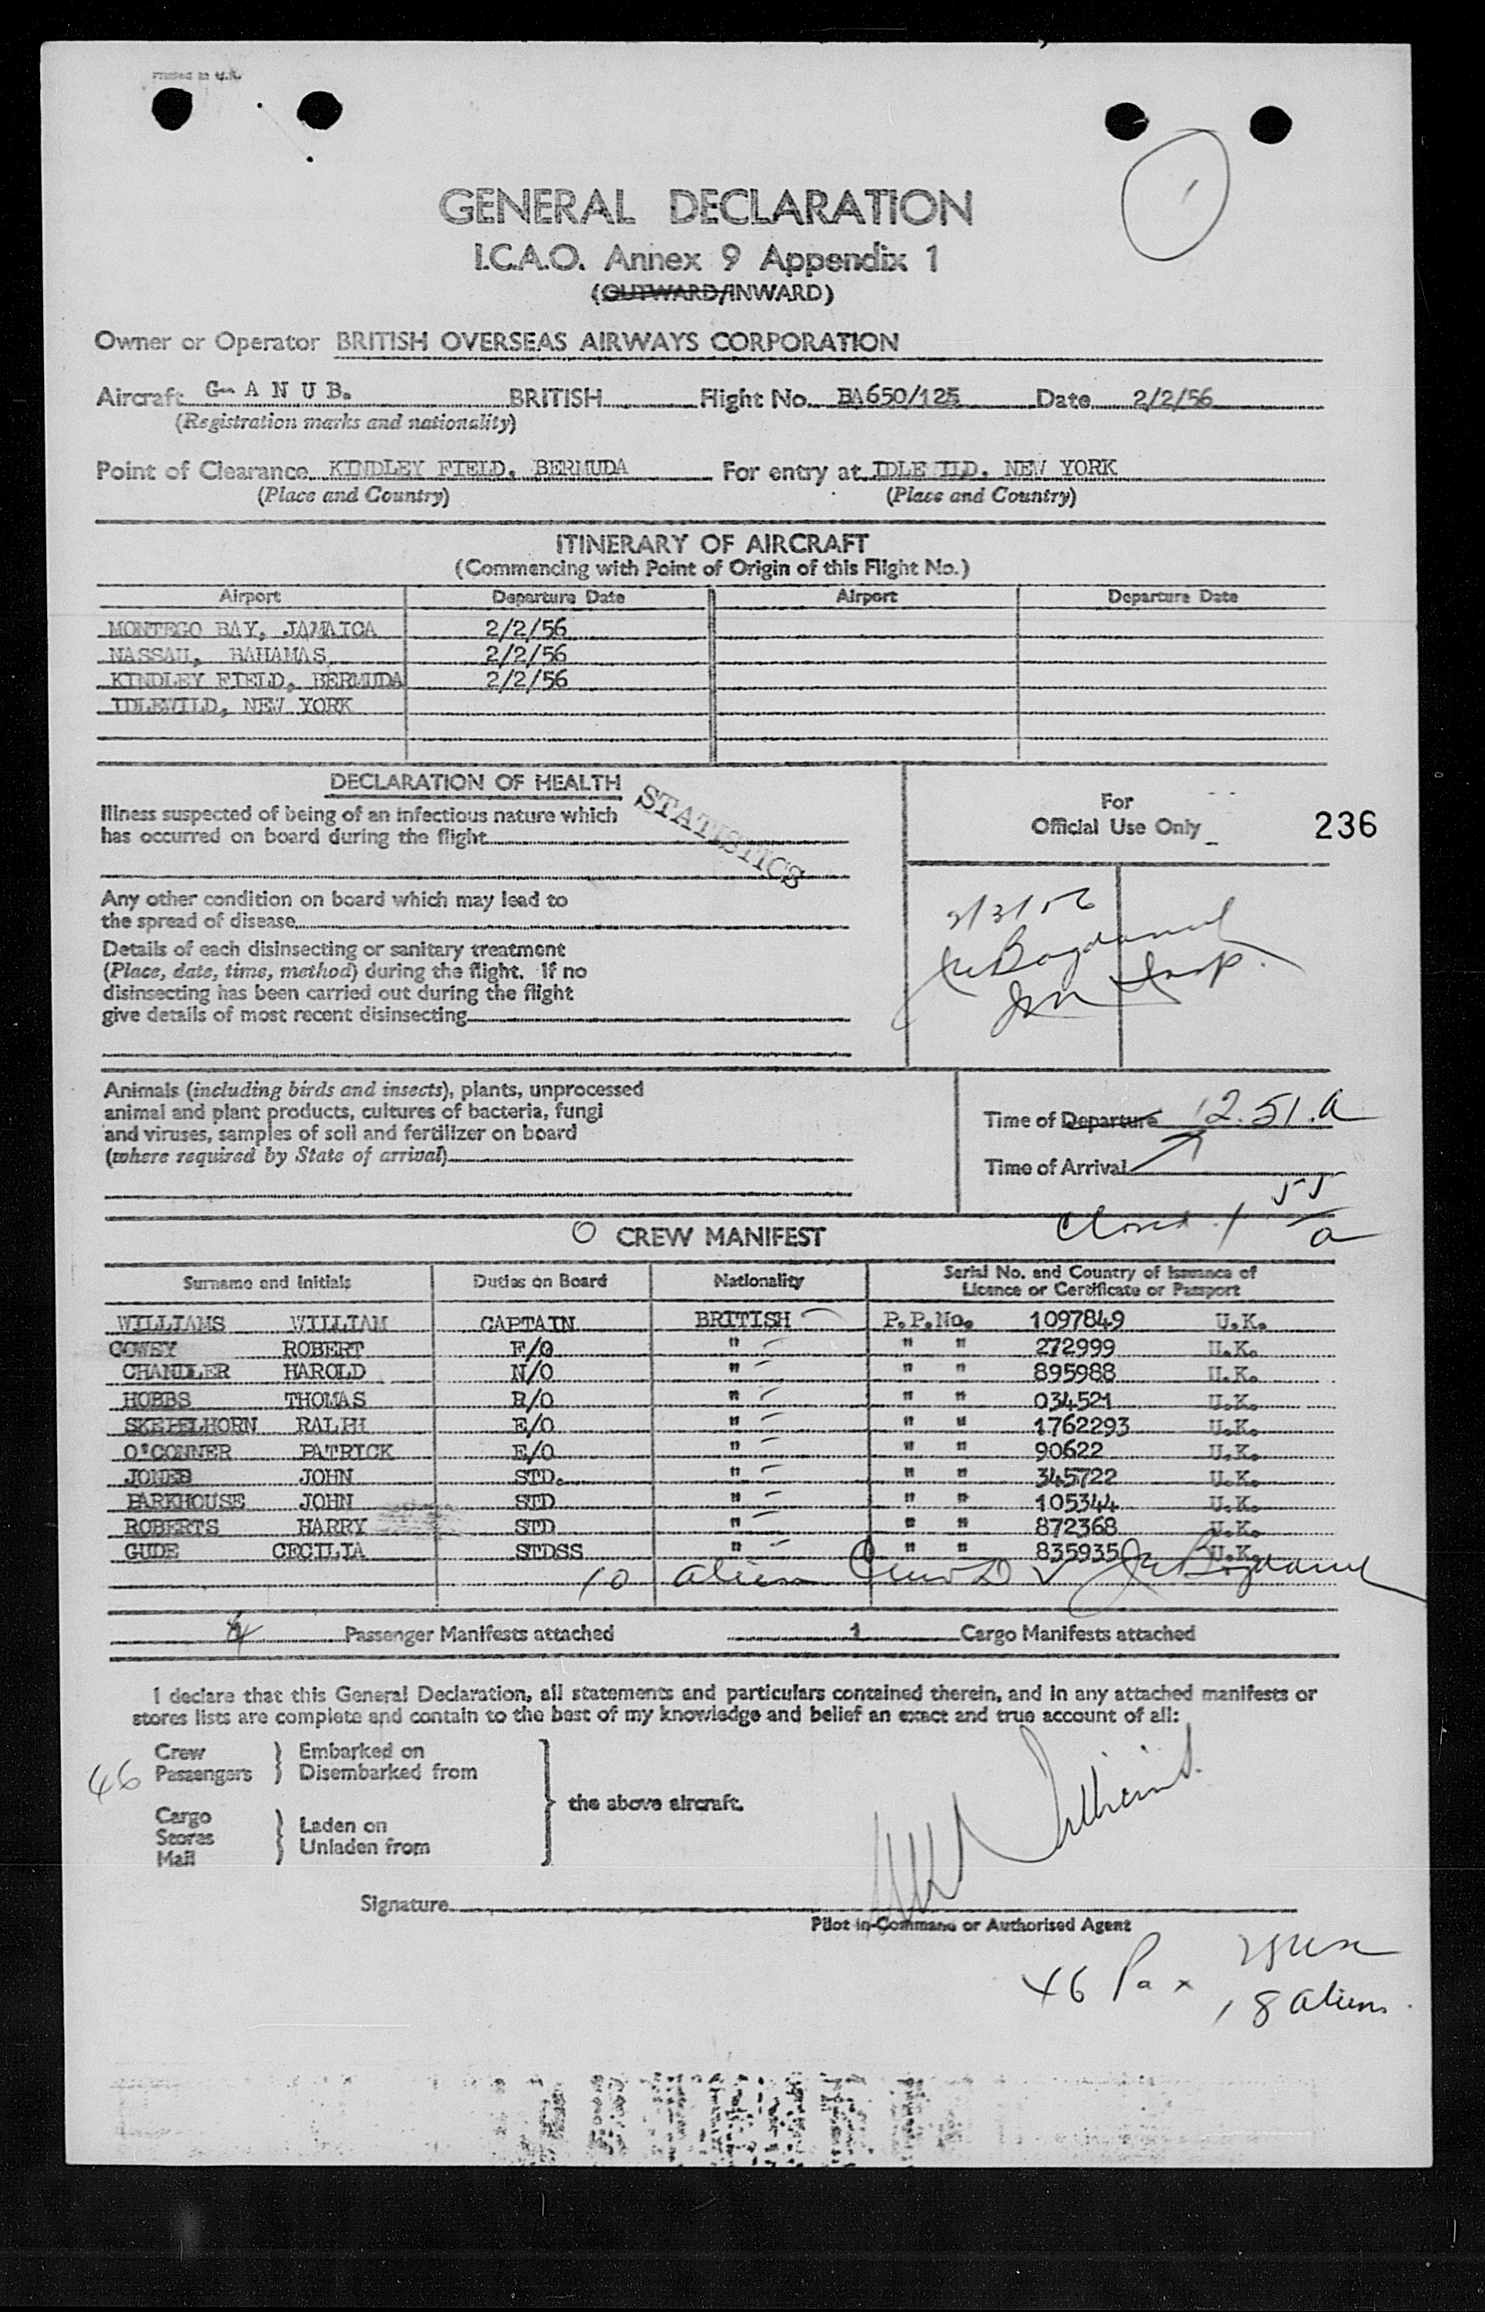 Printed in U.K.
GENERAL DECLARATION
I.C.A.O. Annex 9 Appendix 1
(OUTWARD/INWARD)
Owner or Operator BRITISH OVERSEAS AIRWAYS CORPORATION
Aircraft G- A N U B. BRITISH Flight No. BA650/125 Date 2/2/56
(Registration marks and nationality)
Point of Clearance KINDLEY FIELD, BERMUDA For entry at IDLEWILD, NEW YORK
(Place and Country) (Place and Country)
ITINERARY OF AIRCRAFT
(Commencing with Point of Origin of this Flight No.)
Airport Departure Date Airport Departure Date
MONTEGO BAY, JAMAICA 2/2/56
NASSAU, BAHAMAS 2/2/56
KINDLEY FIELD, BERMUDA 2/2/56
IDLEWILD, NEW YORK
DECLARATION OF HEALTH
STATISTICS
Illness suspected of being of an infectious nature which
has occurred on board during the flight
For
Official Use Only
236
Any other condition on board which may lead to
the spread of disease
Details of each disinsecting or sanitary treatment
(Place, date, time, method) during the flight. If no
disinsecting has been carried out during the flight
give details of most recent disinsecting
2/3/56
Insp.
Animals (including birds and insects), plants, unprocessed
animal and plant products, cultures of bacteria, fungi
and viruses, samples of soil and fertilizer on board
(where required by State of arrival)
Time of Departure 12.51.a
Time of Arrival
Closed 1 55 a
CREW MANIFEST
Surname and Initials Duties on Board Nationality Serial No. and Country of Issuance of
Licence or Certificate or Passport
WILLIAMS WILLIAM CAPTAIN BRITISH P.P.No. 1097849 U.K.
COWEY ROBERT F/O " " " 272999 U.K.
CHANDLER HAROLD N/O " " " 895988 U.K.
HOBBS THOMAS R/O " " " 034521 U.K.
SKEPELHORN RALPH E/O " " " 1762293 U.K.
O'CONNER PATRICK E/O " " " 90622 U.K.
JONES JOHN STD. " " " 345722 U.K.
PARKHOUSE JOHN STD " " " 105344 U.K.
ROBERTS HARRY STD " " " 872368 U.K.
GUDE CECILIA STDSS " " " 835935 U.K.
10 alien Crew
4 Passenger Manifests attached 1 Cargo Manifests attached
I declare that this General Declaration, all statements and particulars contained therein, and in any attached manifests or
stores lists are complete and contain to the best of my knowledge and belief an exact and true account of all:
Crew Embarked on
46 Passengers Disembarked from
the above aircraft.
Cargo
Stores Laden on
Mail Unladen from
Signature
Pilot in Command or Authorised Agent
46 Pax
18 aliens